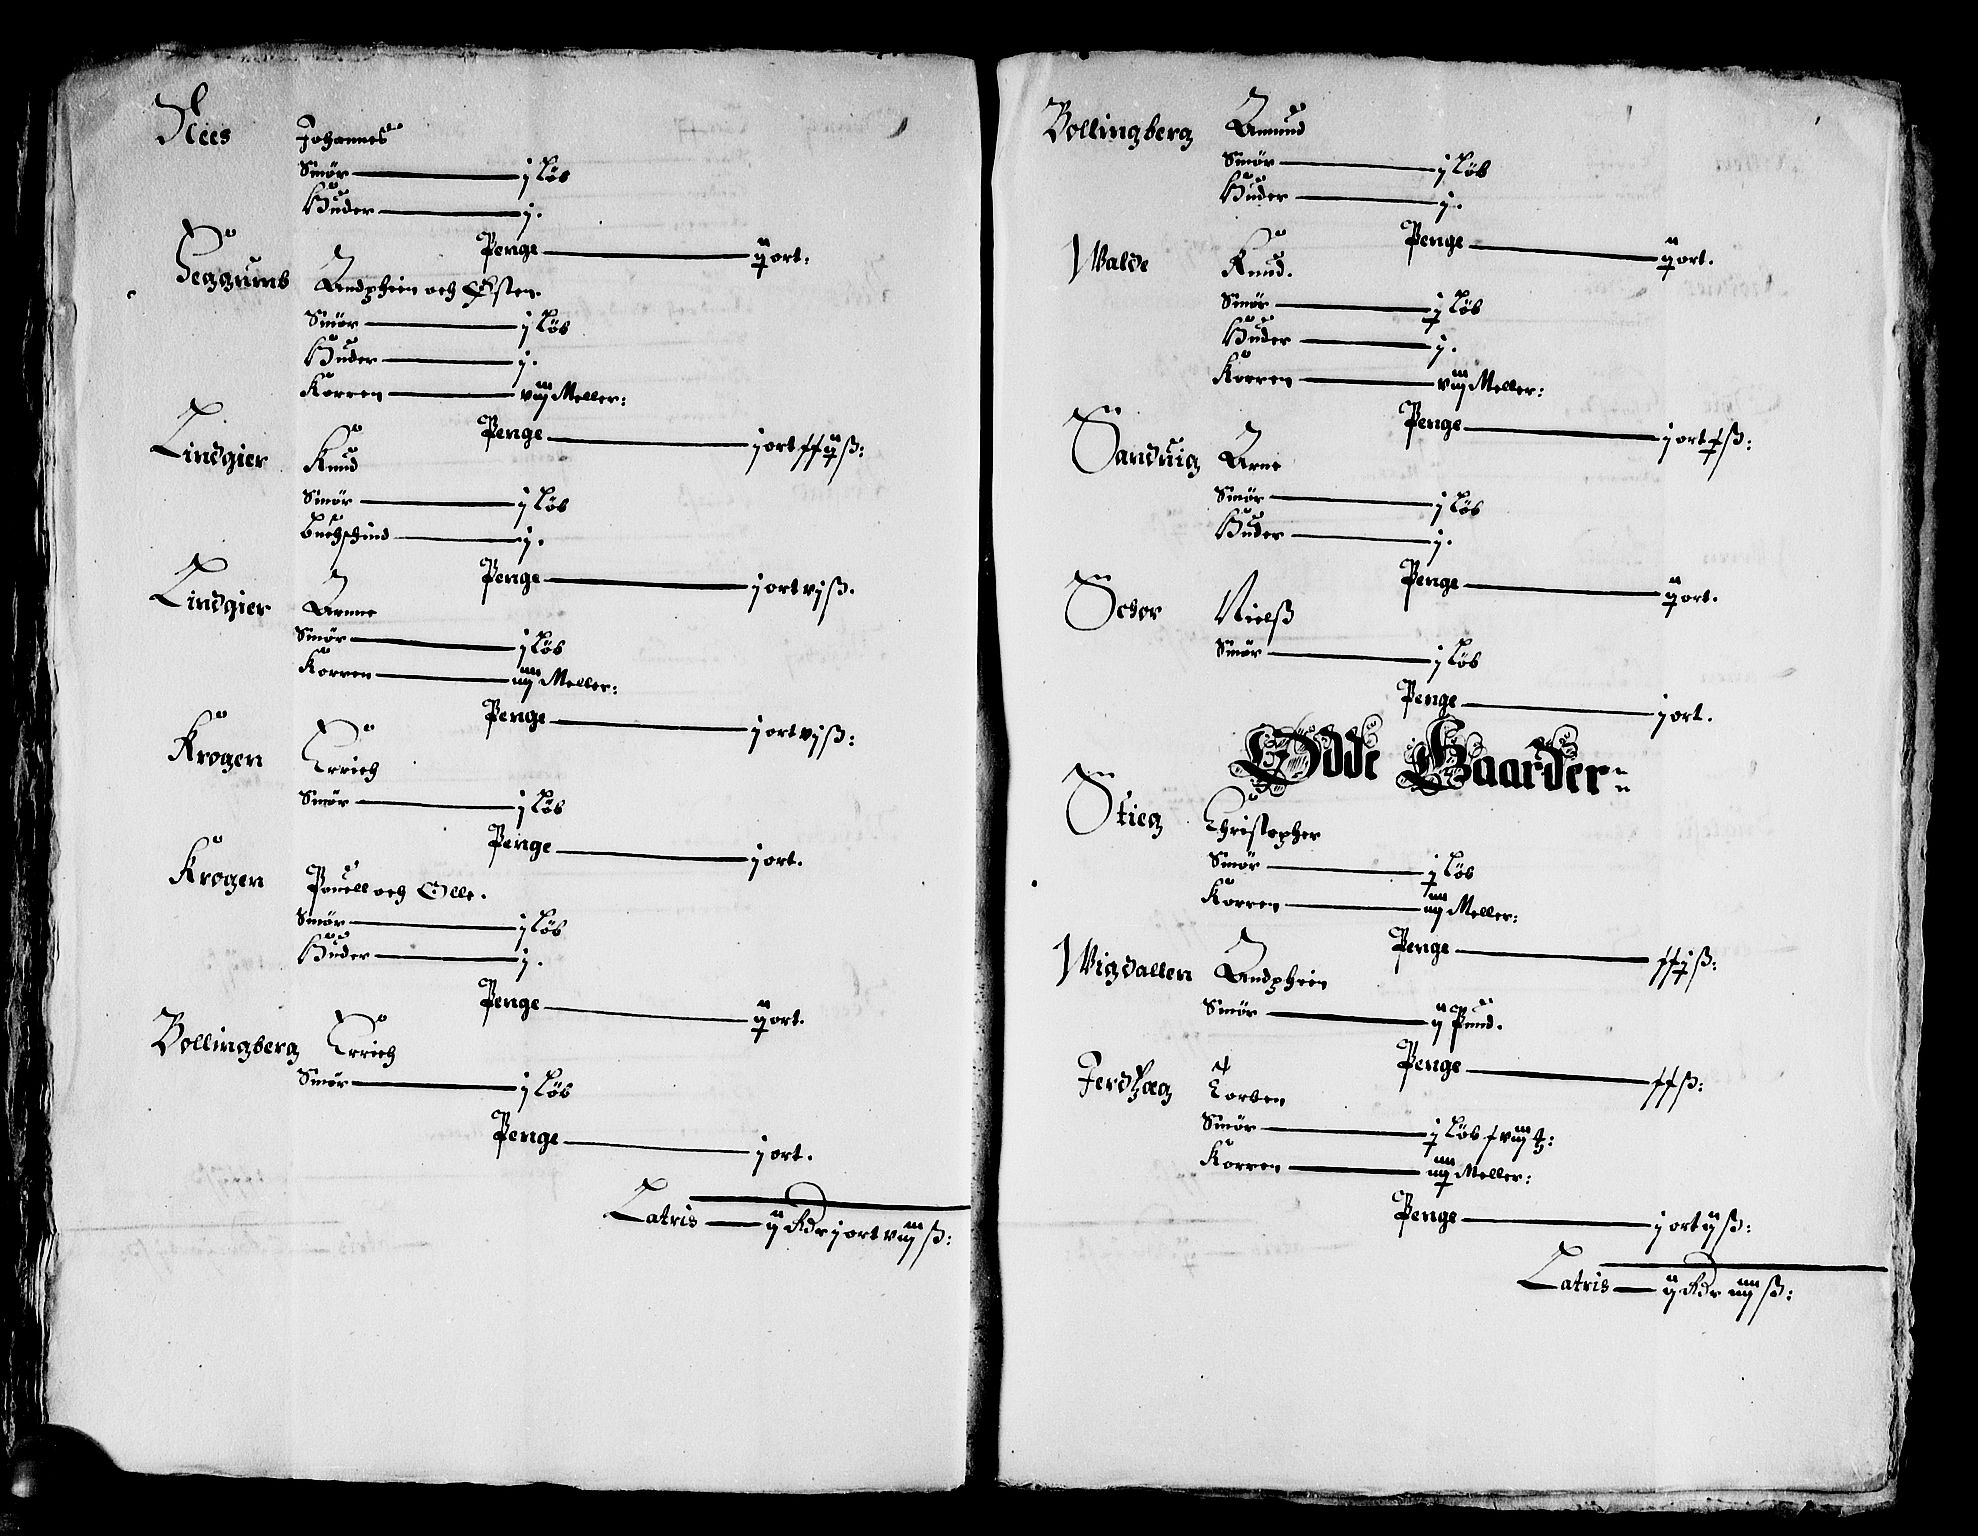 Nees Johannes
Smør — j Løb
Huder — j.
Penge — ij ort:
Seggumb Andphein och Østen.
Smør — j Løb
Huder — j.
Korren — viij Meller:
Penge — j ort ffij ß:
Lindgier Knud
Smør — j Løb
Buchschind — j.
Penge — j ort vj ß.
Lindgier Arnne
Smør — j Løb
Korren — iiij Meller:
Penge — j ort vj ß:
Krogen Errich
Smør — j Løb
Penge — j ort.
Krogen Pouell och Olle.
Smør — j Løb
Huder — j.
Penge — ij ort.
Bollingberg Errich
Smør — j Løb
Penge — j ort.
Latris — ij Rdr j ort viij ß:
Bollingberg Amund
Smør — j Løb
Huder — j.
Penge — ij ort.
Walde Knud.
Smør — j Løb
Huder — j.
Korren — viij Meller:
Penge — j ort f ß:
Sanduig Arne
Smør — j Løb
Huder — j.
Penge — ij ort.
Sedor Nielß
Smør — j Løb
Penge — j ort.
Odde Gaarder
Stieg Christopher
Smør — j Løb
Korren — iiij Meller:
Penge — ffj ß:
Wigdallen Andphein
Smør — ij Pund.
Penge — ff ß:
Ferdhæg Torben
Smør — j Løb f viij ℔:
Korren — iiij Meller:
Penge — j ort ij ß:
Latris — ij Rdr iiij ß: